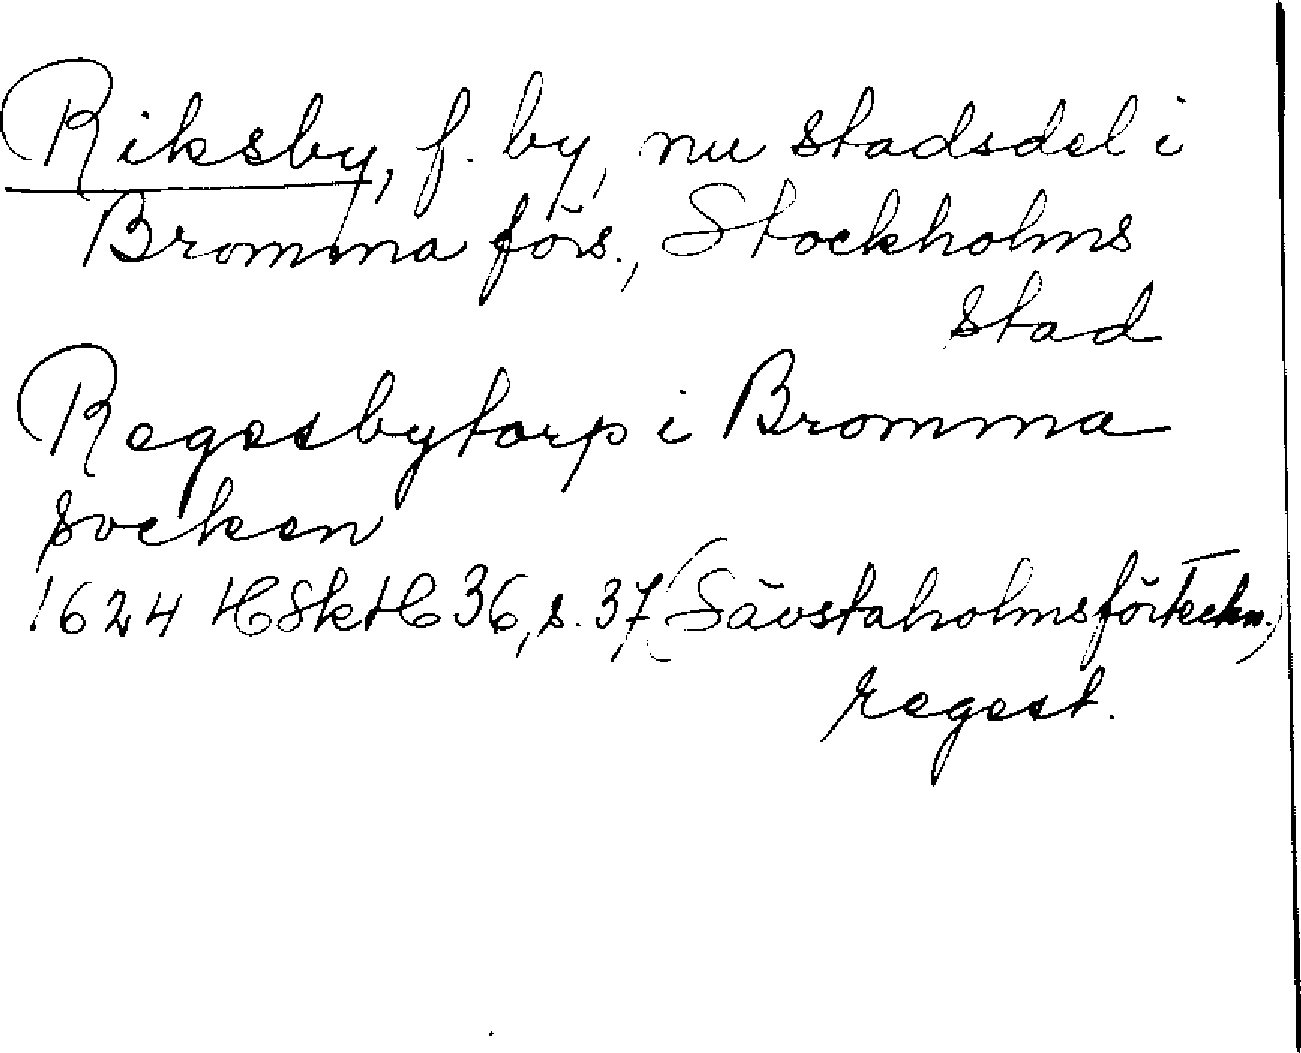 Riksby, f. by, nu stadsdel i
Bromma förs., Stockholms
stad
Regesbytorp i Bromma
socken
1624 HSkH 36, s. 37 (Sävstaholmsförteckn.)
regest.